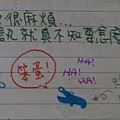 很麻煩…
就真不知要怎麼
笨蛋!
HA!
HA!
HA!